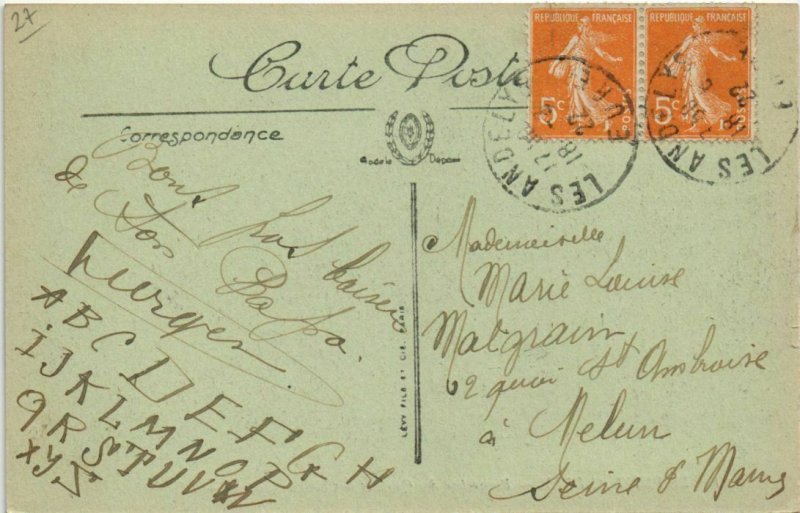 27
Carte Posta
RÉPUBLIQUE FRANÇAISE
5c
RÉPUBLIQUE FRANÇAISE
5c
LES ANDELYS
EURE
LES ANDELYS
Correspondance
Modèle Déposé
Bons baisers
de Ton Papa.
A B C D E F G H
I J K L M N O P
Q R S T U V W
X Y Z
LÉVY FILS ET CIE. PARIS
Mademoiselle
Marie Louise
Malgrain
2 quai St Ambroise
à Melun
Seine & Marne